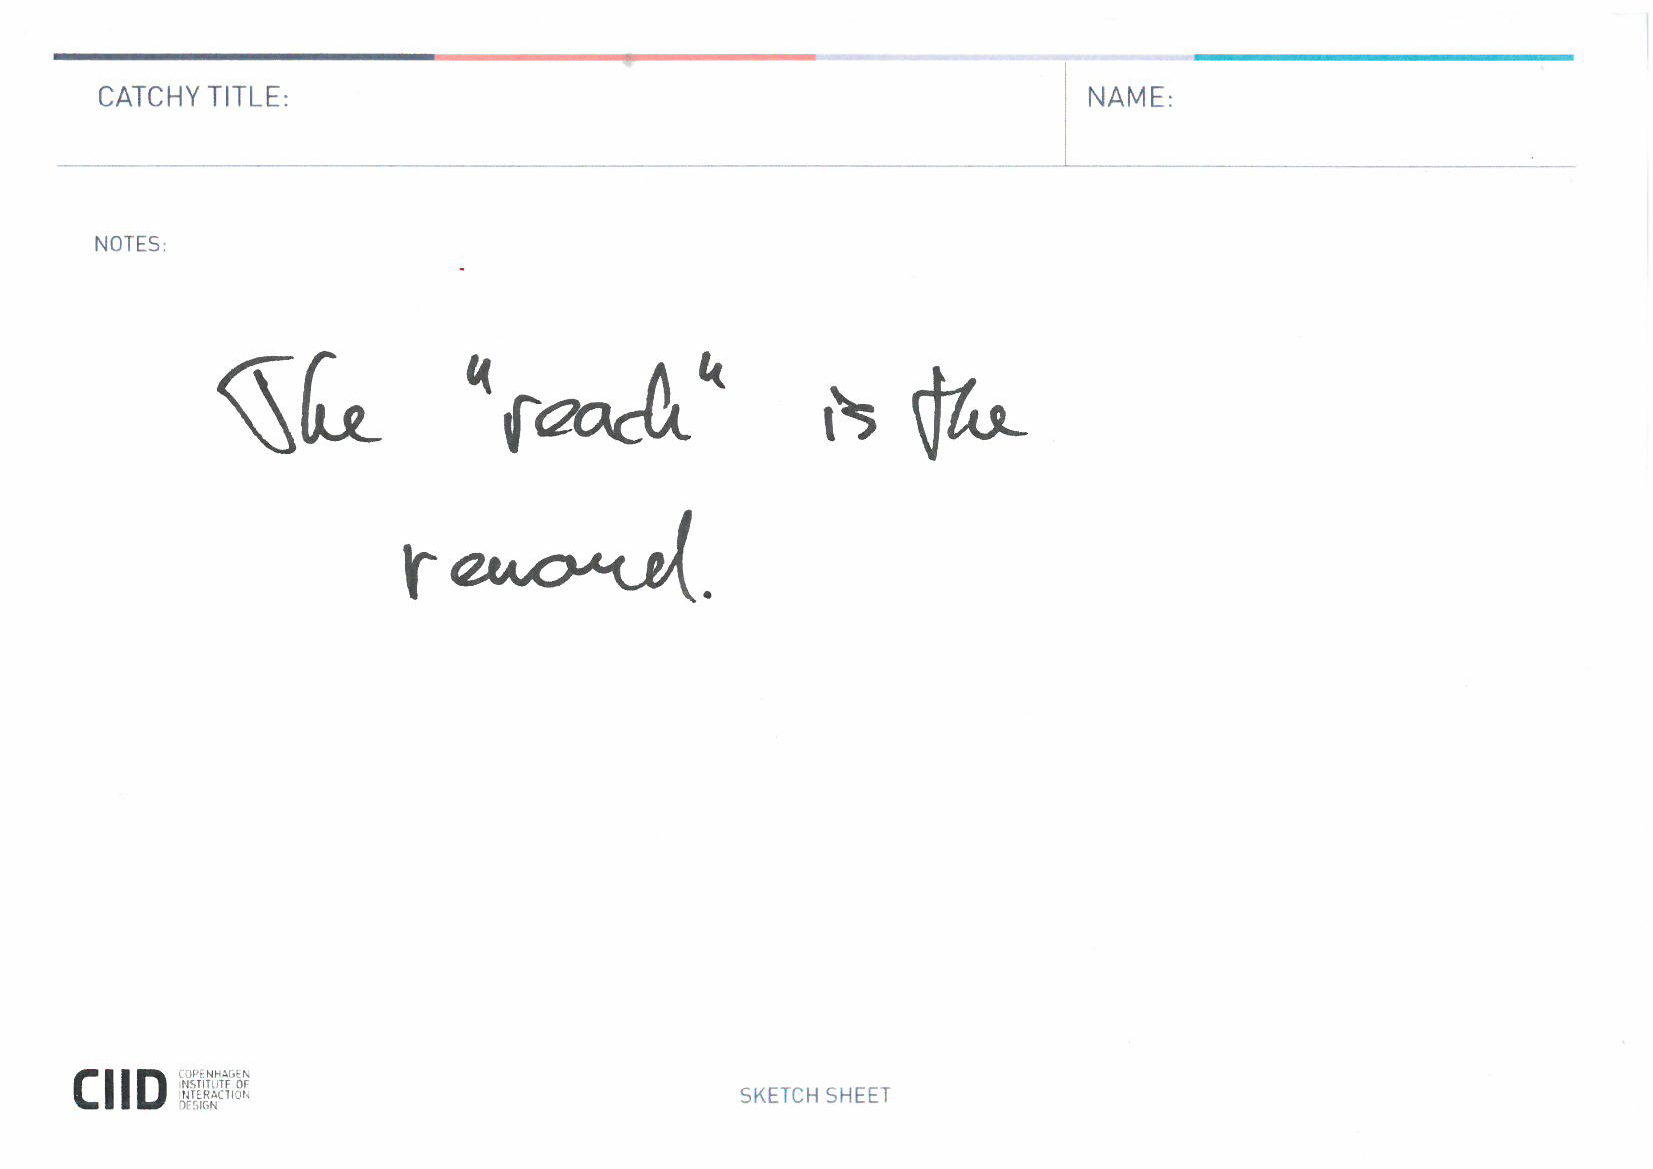 CATCHY TITLE:
NAME:
NOTES:
The "reach" is the
reward.
CIID
COPENHAGEN
INSTITUTE OF
INTERACTION
DESIGN
SKETCH SHEET